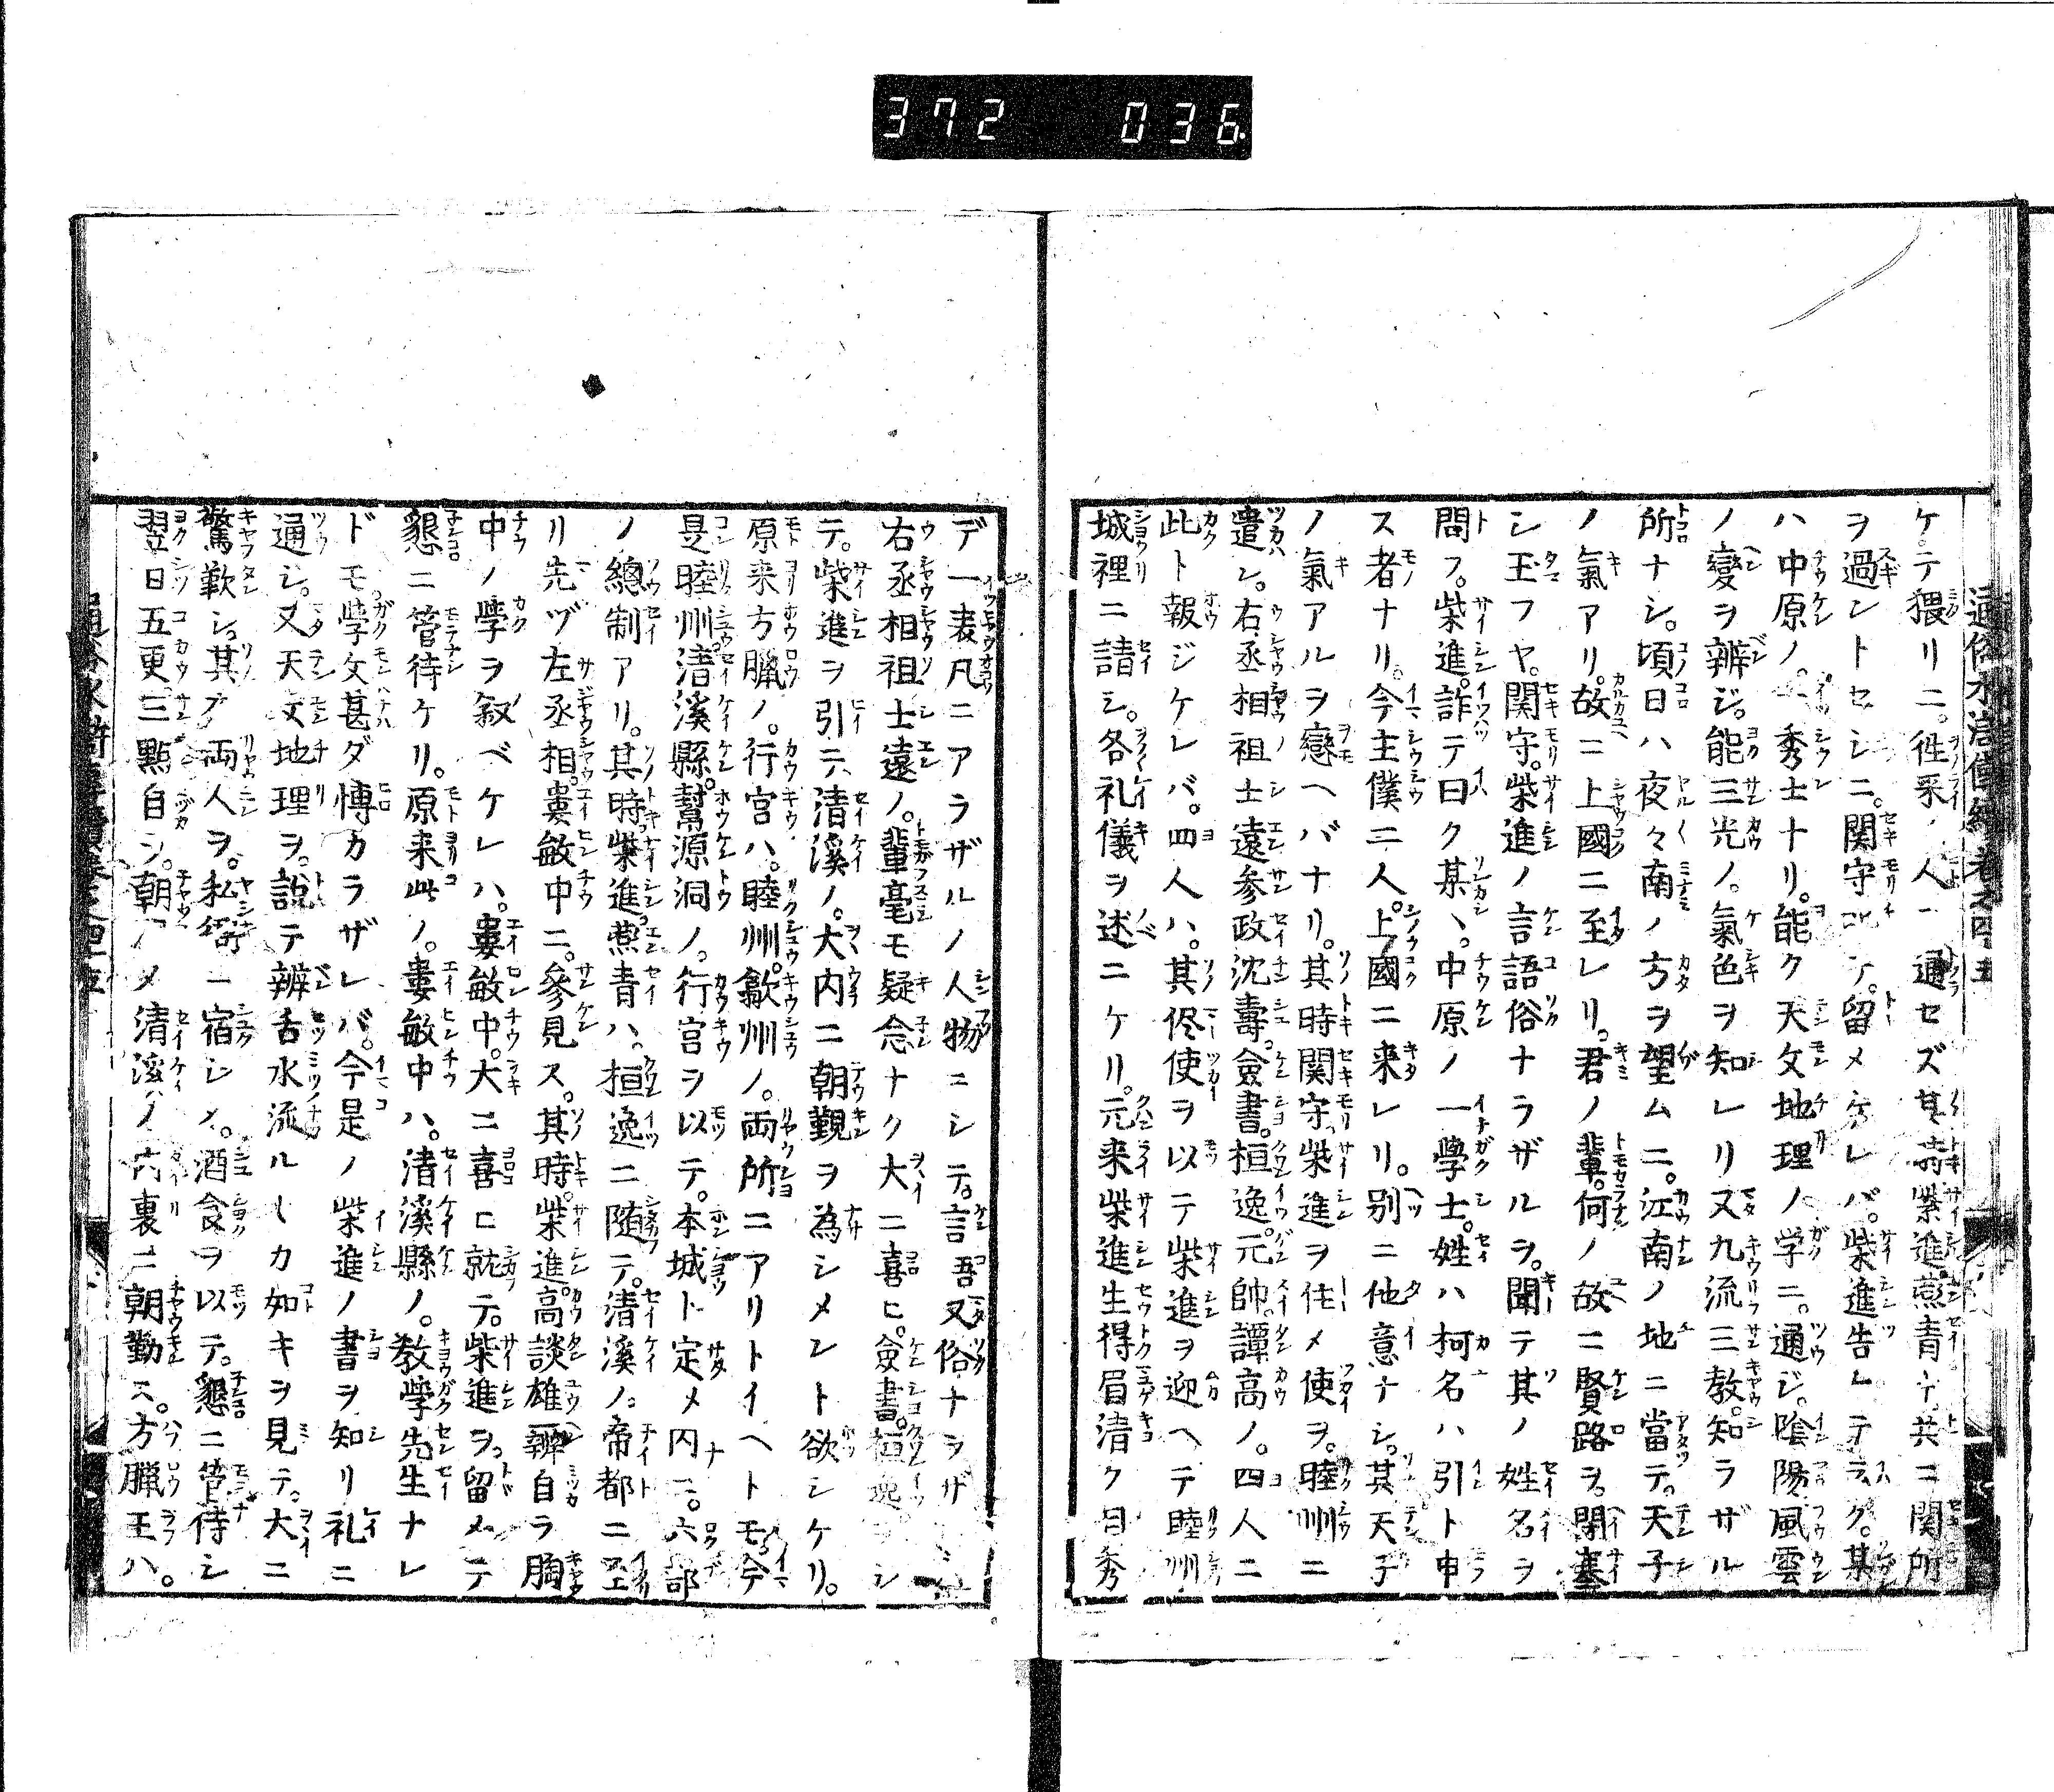 372 036
通俗水滸傳 卷之四十五
ケテ猥リニ。徃来ノ人ヲ通セズ其時柴進燕青ト共ニ関所
ヲ過ントセシニ。関守留メケレバ。柴進告テ某
ハ中原ノ。一秀士ナリ。能ク天文地理ノ学ニ。通ジ。陰陽風雲
ノ變ヲ辨ジ。能三光ノ。氣色ヲ知レリ又九流三教。知ラザル
所ナシ。頃日ハ夜々南ノ方ヲ望ムニ。江南ノ地ニ當テ。天子
ノ氣アリ。故ニ上國ニ至レリ。君ノ輩。何ノ故ニ賢路ヲ。閉塞
シ玉フヤ。関守。柴進ノ言語俗ナラザルヲ。聞テ其ノ姓名ヲ
問フ。柴進。詐テ曰ク某ハ、中原ノ一學士。姓ハ柯名ハ引ト申
ス者ナリ。今主僕二人。上國ニ来レリ。別ニ他意ナシ。其天子
ノ氣アルヲ戀ヘバナリ。其時関守。柴進ヲ住メ使ヲ。睦州ニ
遣シ。右丞相祖士遠参政沈壽。僉書。桓逸。元帥。譚高ノ。四人ニ
此ト報ジケレバ。四人ハ。其侭使ヲ以テ柴進ヲ迎ヘテ睦州
城裡ニ請シ。各礼儀ヲ述ニケリ。元来柴進生得眉清ク目秀
デ一表凡ニアラザルノ人物ニシテ。言吾又俗ナラザ
右丞相祖士遠ノ。輩毫モ疑念ナク大ニ喜ヒ。僉書。桓逸ヲシ
テ。柴進ヲ引テ、清溪ノ。大内ニ朝覲ヲ為シメント欲シケリ。
原来方臘ノ。行宮ハ。睦州。歙州ノ。両所ニアリトイヘトモ今
是睦州。清溪縣。幇源洞ノ。行宮ヲ以テ。本城ト定メ内ニ。六部
ノ總制アリ。其時柴進。燕青ハ、桓逸ニ随テ。清溪ノ帝都ニ至
リ先ヅ左丞相。婁敏中ニ。參見ス。其時。柴進。高談雄辨自ラ胸
中ノ學ヲ叙ベケレハ。婁敏中。大ニ喜ヒ就テ。柴進ヲ。留メテ
懇ニ管待ケリ。原来此ノ。婁敏中ハ。清溪縣ノ。教學先生ナレ
ドモ。學文甚ダ博カラザレバ。今是ノ柴進ノ書ヲ知リ礼ニ
通シ。又天文地理ヲ。說テ辨舌水流ルヽカ如キヲ見テ。大ニ
驚歎シ。其夕両人ヲ。私衙ニ宿シメ。酒食ヲ以テ。懇ニ管待シ
翌日五更。三點自ラ。朝ノメ清溪ノ内裏ニ朝勤ス。方臘王ハ。